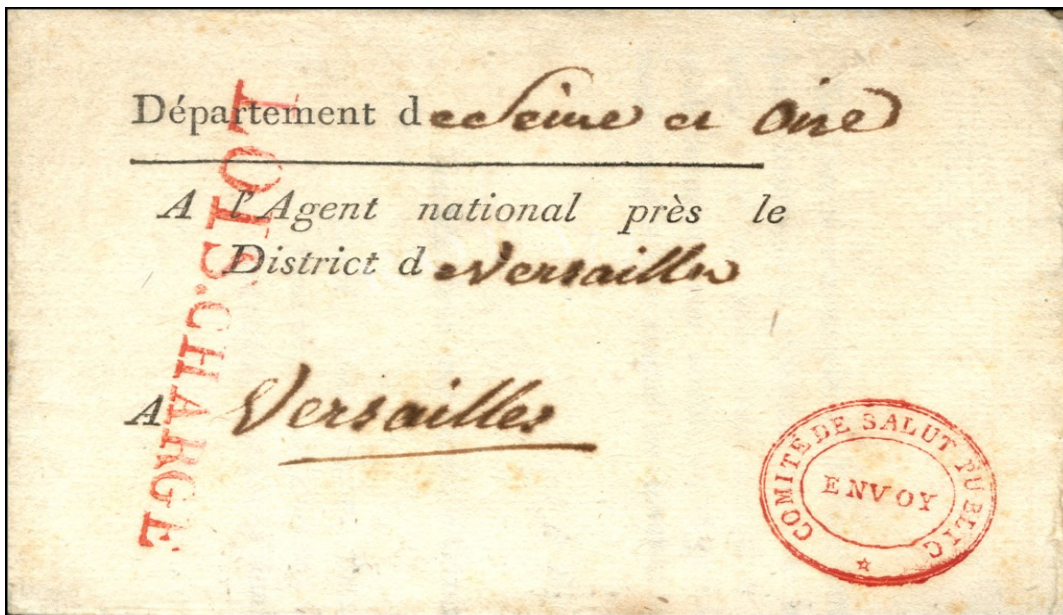 Département de Seine et Oise
A l'Agent national près le
District de Versailles
A Versailles
LOIS.CHARGE
COMITÉ DE SALUT PUBLIC
ENVOY